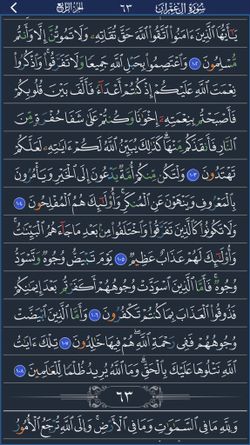 سُورَةُ آلِ عِمْرَانَ ٦٣ الجُزْءُ الرَّابِعُ
يَٰٓأَيُّهَا ٱلَّذِينَ ءَامَنُوا۟ ٱتَّقُوا۟ ٱللَّهَ حَقَّ تُقَاتِهِۦ وَلَا تَمُوتُنَّ إِلَّا وَأَنتُم
مُّسْلِمُونَ ١٠٢ وَٱعْتَصِمُوا۟ بِحَبْلِ ٱللَّهِ جَمِيعًا وَلَا تَفَرَّقُوا۟ وَٱذْكُرُوا۟
نِعْمَتَ ٱللَّهِ عَلَيْكُمْ إِذْ كُنتُمْ أَعْدَآءً فَأَلَّفَ بَيْنَ قُلُوبِكُمْ
فَأَصْبَحْتُم بِنِعْمَتِهِۦٓ إِخْوَٰنًا وَكُنتُمْ عَلَىٰ شَفَا حُفْرَةٍ مِّنَ
ٱلنَّارِ فَأَنقَذَكُم مِّنْهَا كَذَٰلِكَ يُبَيِّنُ ٱللَّهُ لَكُمْ ءَايَٰتِهِۦ لَعَلَّكُمْ
تَهْتَدُونَ ١٠٣ وَلْتَكُن مِّنكُمْ أُمَّةٌ يَدْعُونَ إِلَى ٱلْخَيْرِ وَيَأْمُرُونَ
بِٱلْمَعْرُوفِ وَيَنْهَوْنَ عَنِ ٱلْمُنكَرِ وَأُو۟لَٰٓئِكَ هُمُ ٱلْمُفْلِحُونَ ١٠٤
وَلَا تَكُونُوا۟ كَٱلَّذِينَ تَفَرَّقُوا۟ وَٱخْتَلَفُوا۟ مِنۢ بَعْدِ مَا جَآءَهُمُ ٱلْبَيِّنَٰتُ
وَأُو۟لَٰٓئِكَ لَهُمْ عَذَابٌ عَظِيمٌ ١٠٥ يَوْمَ تَبْيَضُّ وُجُوهٌ وَتَسْوَدُّ
وُجُوهٌ فَأَمَّا ٱلَّذِينَ ٱسْوَدَّتْ وُجُوهُهُمْ أَكَفَرْتُم بَعْدَ إِيمَٰنِكُمْ
فَذُوقُوا۟ ٱلْعَذَابَ بِمَا كُنتُمْ تَكْفُرُونَ ١٠٦ وَأَمَّا ٱلَّذِينَ ٱبْيَضَّتْ
وُجُوهُهُمْ فَفِى رَحْمَةِ ٱللَّهِ هُمْ فِيهَا خَٰلِدُونَ ١٠٧ تِلْكَ ءَايَٰتُ
ٱللَّهِ نَتْلُوهَا عَلَيْكَ بِٱلْحَقِّ وَمَا ٱللَّهُ يُرِيدُ ظُلْمًا لِّلْعَٰلَمِينَ ١٠٨
٦٣
وَلِلَّهِ مَا فِى ٱلسَّمَٰوَٰتِ وَمَا فِى ٱلْأَرْضِ وَإِلَى ٱللَّهِ تُرْجَعُ ٱلْأُمُورُ